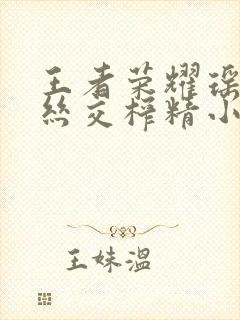 王者荣耀瑶
丝交榨精小
王妹温